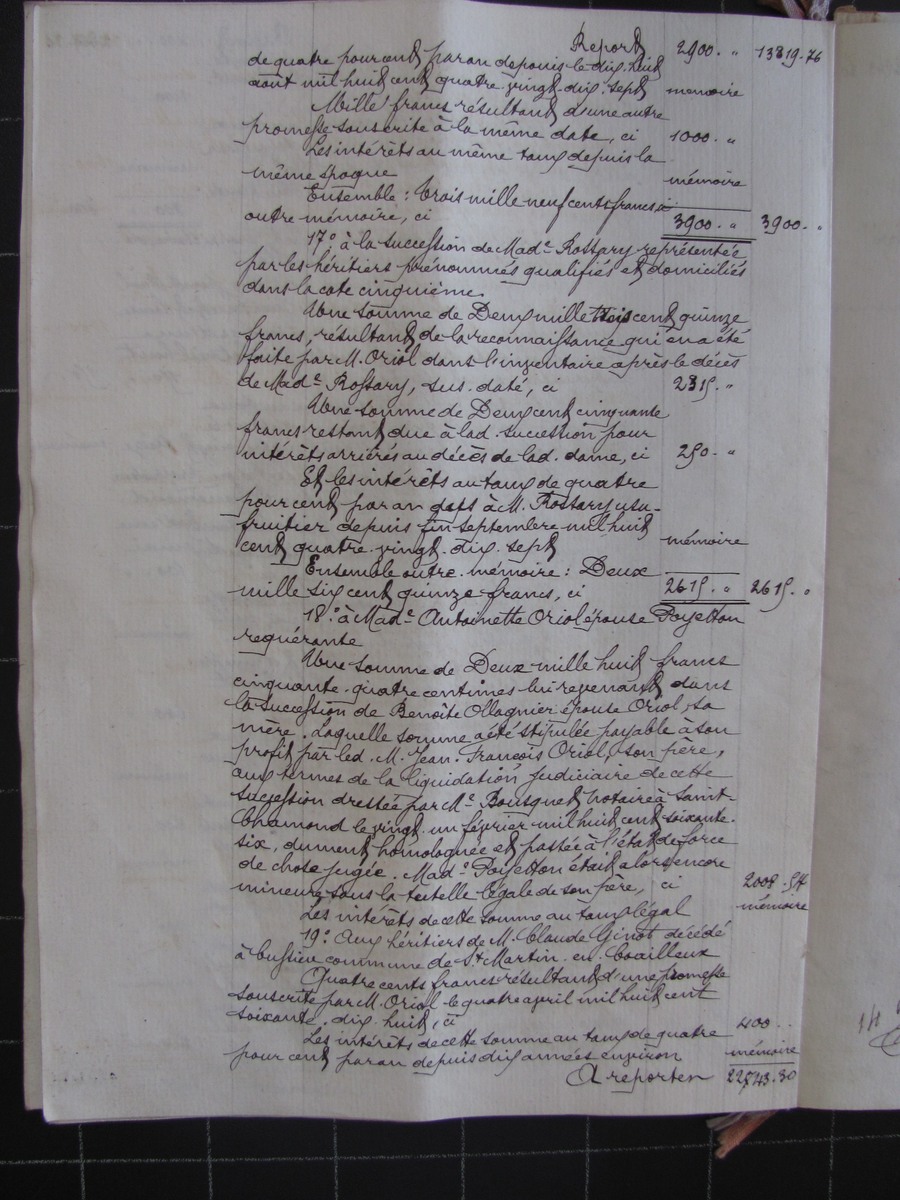 Report 2900. " 13819.76
de quatre pour cent par an depuis le dix. huit
août mil huit cent quatre. vingt. dix. sept mémoire
Mille francs résultant d'une autre
promesse souscrite à la même date, ci 1000. "
Les intérêts au même taux depuis la
même époque mémoire
Ensemble : trois mille neuf cents francs
outre mémoire, ci 3900. " 3900. "
17° à la succession de Made Rossary représentée
par les héritiers prénommés qualifiés et domiciliés
dans la cote cinquième.
Une somme de Deux mille trois cent quinze
francs, résultant de la reconnaissance qui en a été
faite par M. Oriol dans l'inventaire après le décès
de Made Rossary, sus. daté, ci 2315. "
Une somme de Deux cent cinquante
francs restant due à lad. succession pour
intérêts arriérés au décès de lad. dame, ci 250. "
Et les intérêts au taux de quatre
pour cent par an dûs à M. Rossary usu-
fruitier depuis fin septembre mil huit
cent quatre. vingt. dix. sept mémoire
Ensemble outre. mémoire : Deux
mille six cent quinze francs, ci 2615. " 2615. "
18° à Made Antoinette Oriol épouse Poyetton
requérante
Une somme de Deux mille huit francs
cinquante. quatre centimes lui revenant dans
la succession de Benoîte Ollagnier épouse Oriol, sa
mère. Laquelle somme a été stipulée payable à son
profit par led. M. Jean. François Oriol, son père,
aux termes de la liquidation judiciaire de cette
succession dressée par Me Bousquet, notaire à Saint-
Chamond le vingt. un février mil huit cent soixante.
six, dument homologuée et passée à l'état de force
de chose jugée. Made Poyetton était alors encore
mineure sous la tutelle légale de son père, ci 2008.54
Les intérêts de cette somme au taux légal mémoire
19° Aux héritiers de M. Claude Ginot décédé
à Cussieu commune de St Martin. en. Coailleux
Quatre cents francs résultant d'une promesse
souscrite par M. Oriol le quatre avril mil huit cent
soixante. dix. huit, ci 400 . .
Les intérêts de cette somme au taux de quatre
pour cent par an depuis dix années environ mémoire
A reporter 22743.30